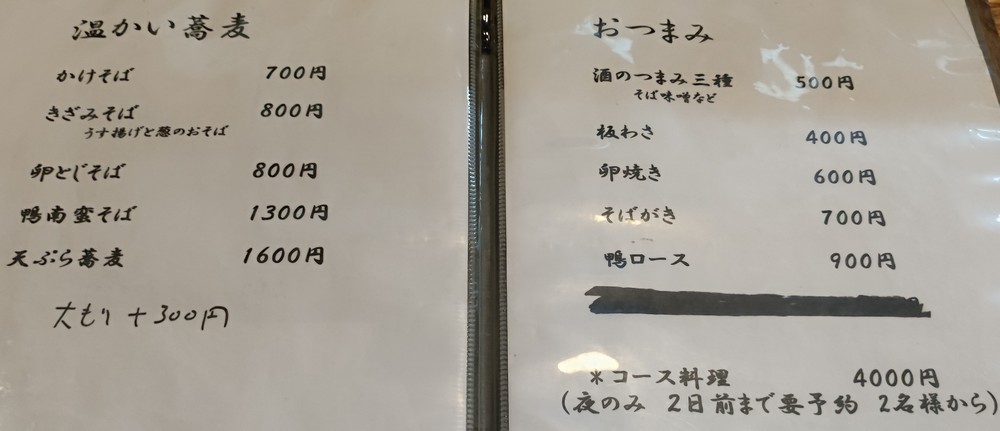 温かい蕎麦
かけそば 700円
きざみそば 800円
うす揚げと葱のおそば
卵とじそば 800円
鴨南蛮そば 1300円
天ぷら蕎麦 1600円
大もり +300円
おつまみ
酒のつまみ三種 500円
そば味噌など
板わさ 400円
卵焼き 600円
そばがき 700円
鴨ロース 900円
*コース料理 4000円
(夜のみ 2日前まで要予約 2名様から)